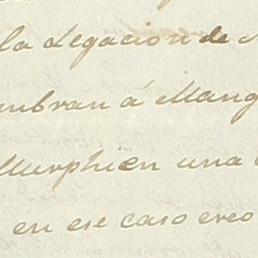 la Legacion de
mbran á Mang
Murphi en una
en ese caso creo